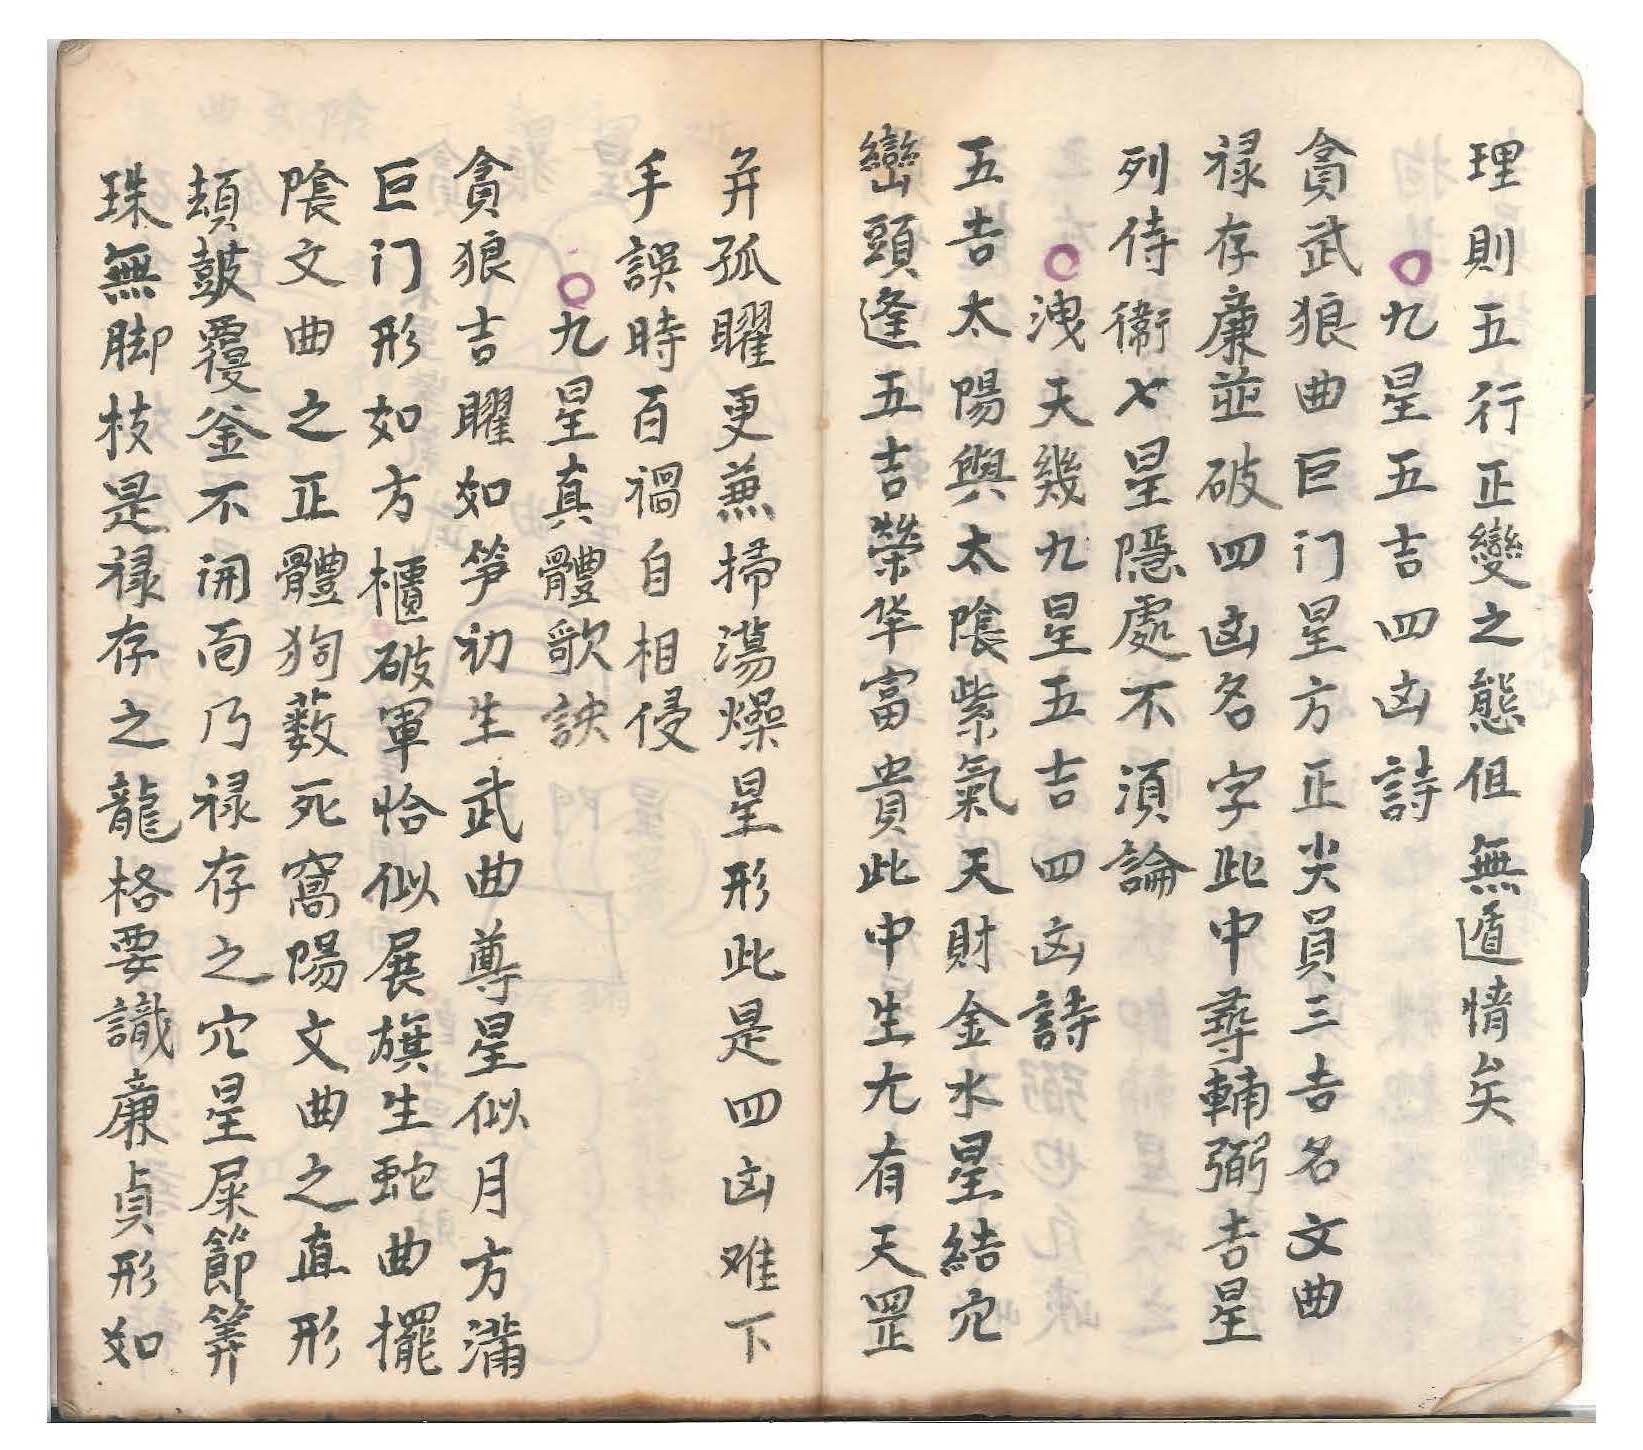 理則五行正變之態伹無遁情矣
○九星五吉四凶詩
貪武狼曲巨门星方正尖員三吉名文曲
禄存廉並破四凶名字此中尋輔弼吉星
列侍衞七星隱處不須論
○洩天幾九星五吉四凶詩
五吉太陽與太陰紫氣天財金水星結穴
巒頭逢五吉榮华富貴此中生尢有天罡
并孤矅更兼掃蕩燥星形此是四凶难下
手誤時百禍自相侵
○九星真體歌訣
貪狼吉矅如笋初生武曲尊星似月方滿
巨门形如方櫃破軍恰似展旗生蛇曲擺
陰文曲之正體狗薮死窩陽文曲之直形
頍皷覆釜不開面乃禄存之穴星屎節筭
珠無脚枝是禄存之龍格要識廉貞形如